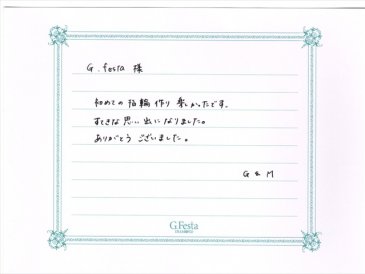 G.festa 様
初めての 指輪 作り 楽しかったです。
すてきな 思い出になりました。
ありがとう ございました。
G & M
G.Festa